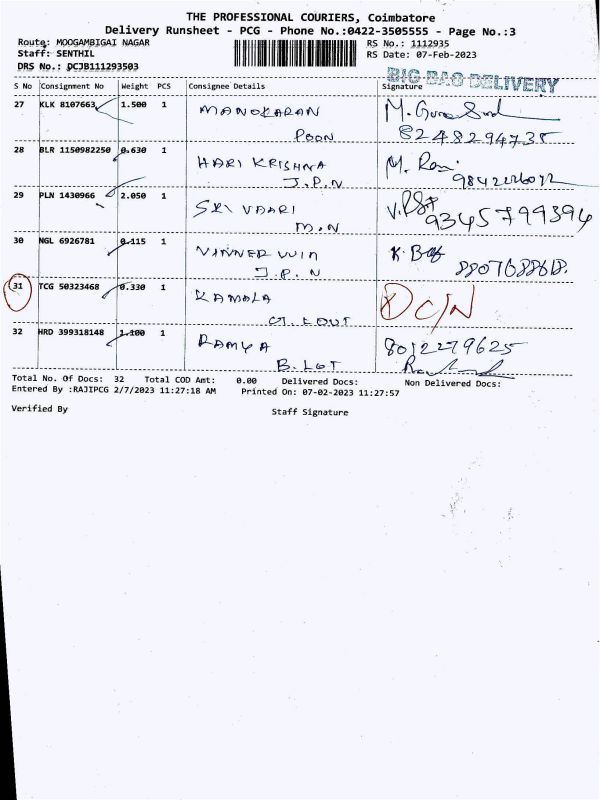 THE PROFESSIONAL COURIERS, Coimbatore
Delivery Runsheet - PCG - Phone No.:0422-3505555 - Page No.:3
Route: MOOGAMBIGAI NAGAR RS No.: 1112935
Staff: SENTHIL RS Date: 07-Feb-2023
DRS No.: DCJB111293503
BIG BAG DELIVERY
S No Consignment No Weight PCS Consignee Details Signature
27 KLK 8107663 1.500 1 MANOKARAN M.
POON 8248294735
28 BLR 1150982250 0.630 1 HARI KRISHNA M.
J.P.N
29 PLN 1430966 2.050 1 SRI VAARI 9345799394
M.N
30 NGL 6926781 0.115 1 VINNER WIN K.
J.P.N 8807688618.
31 TCG 50323468 0.330 1 KAMALA D C/N
32 HRD 399318148 1.100 1 RAMYA 8012279625
B.LOT
Total No. Of Docs: 32 Total COD Amt: 0.00 Delivered Docs: Non Delivered Docs:
Entered By :RAJIPCG 2/7/2023 11:27:18 AM Printed On: 07-02-2023 11:27:57
Verified By Staff Signature